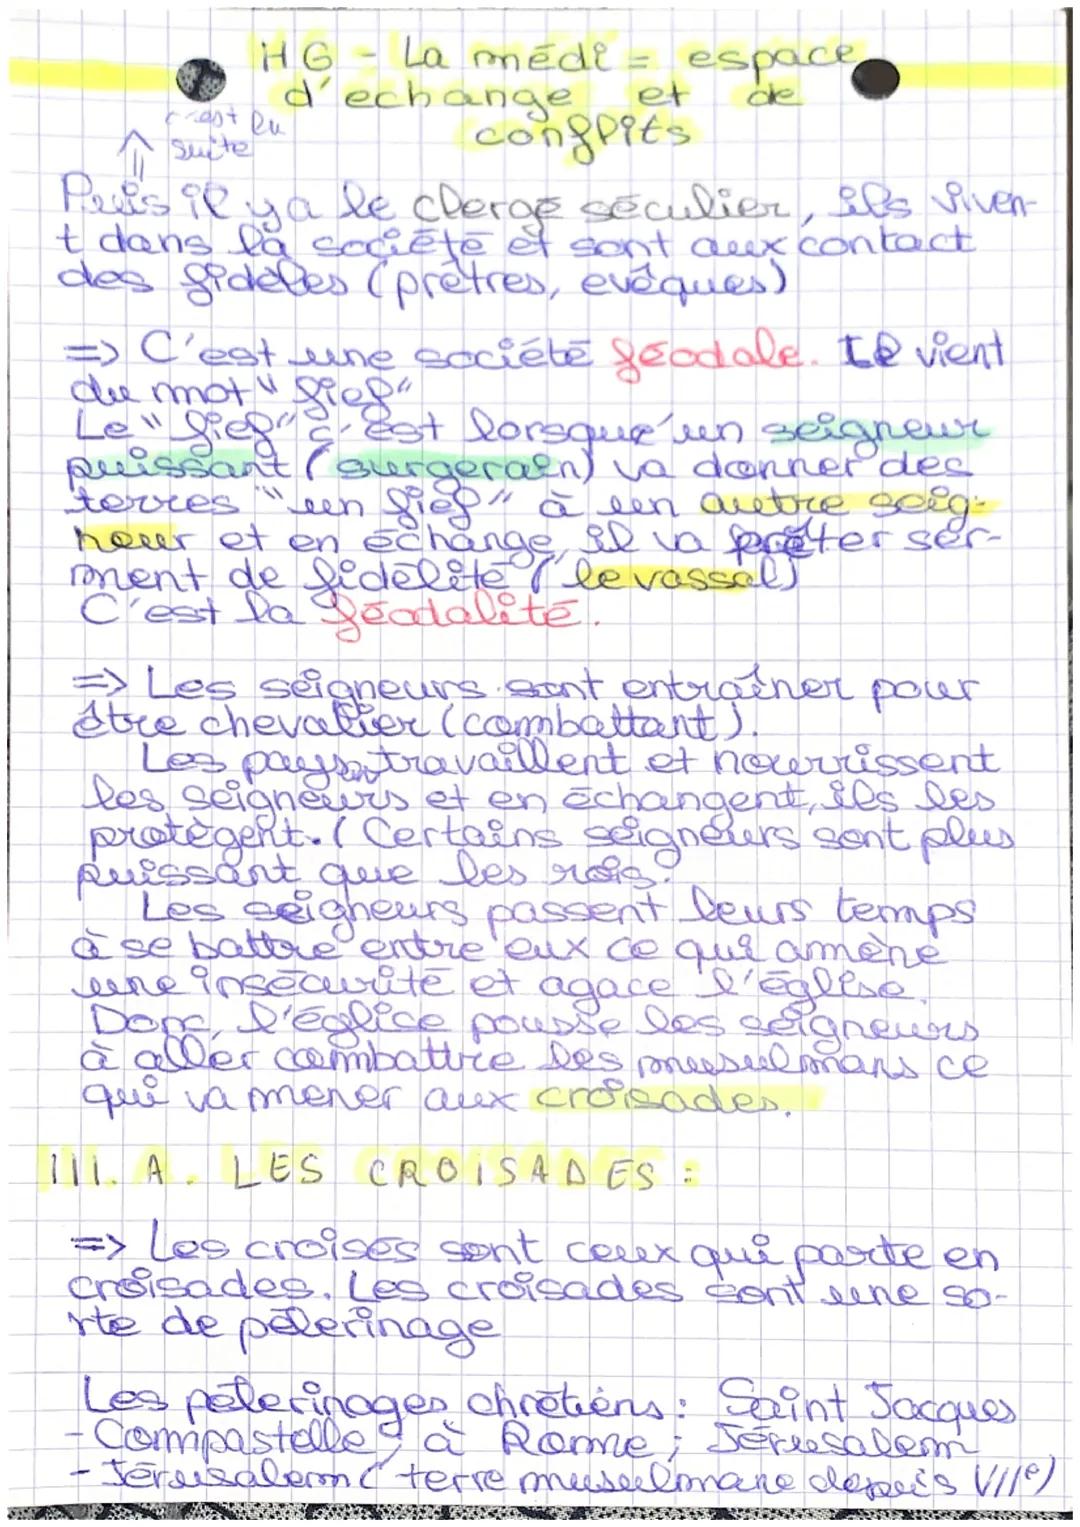 HG - La médi = espace
d'echange et de
conflits
c'est la
suite
Puis il y a le clergé séculier, ils viven-
t dans la société et sont aux contact
des fidèles (prêtres, evêques)
=> C'est une société féodale. Il vient
du mot "fief"
Le "fief" c'est lorsque'un seigneur
puissant (surgerain) va donner des
terres "un fief" à un autre seig-
neur et en échange, il va prêter ser-
ment de fidélité (le vassal)
C'est la féodalité.
=> Les seigneurs sont entraîner pour
être chevalier (combattant).
Les paysan travaillent et nourrissent
les seigneurs et en échangent, ils les
protègent. (Certains seigneurs sont plus
puissant que les rois.
Les seigneurs passent leurs temps
à se battre entre eux ce qui amène
une insécurité et agace l'église.
Donc, l'églice pousse les seigneurs
à aller combattre les musulmans ce
qui va mener aux croisades.
III. A. LES CROISADES :
=> Les croisés sont ceux qui parte en
croisades. Les croisades sont une so-
rte de pélerinage
Les pélerinages chrétiens : Saint Jacques
- Compastelle, à Rome ; Jérusalem
- Jérusalem (terre musulmane depuis VIIe)